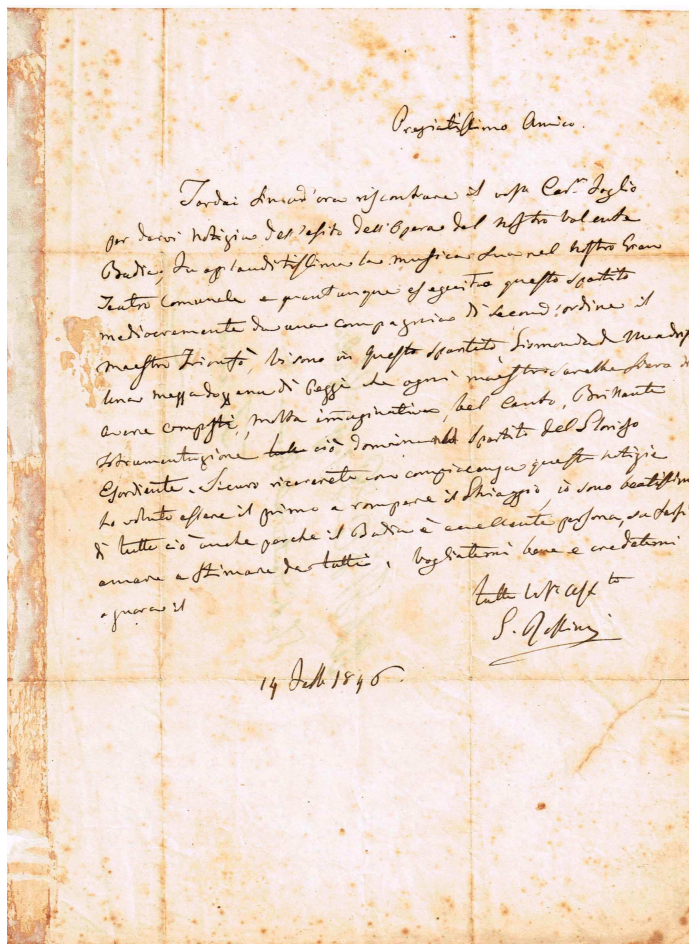 Pregiatissimo Amico.
Tardai sinad'ora riscontrare il vostro Car.mo foglio
per darvi notizia dell'esito dell'Opera del nostro valente
Badia; fu applauditissima la musica sua nel nostro Gran
Teatro Comunale e quantunque eseguito questo spartito
mediocremente da una compagnia di second'ordine il
maestro trionfò, vi sono in questo spartito
una mezza dozzena di Pezzi che ogni maestro sarebbe di
avere composti, molta imaginativa, bel canto, Brillante
Istrumentazione ciò domina spartito del
Esordiente. Sicuro riceverete con compiacenza queste notizie
ho voluto essere il primo a rompere il Ghiaccio, io sono beatissimo
di tutto ciò anche perche il Badia è eccellente persona, sa farsi
amare e stimare da tutti, vogliatemi bene e credetemi
ognora il
tutto Vostro aff.to
G. Rossini
14 1846